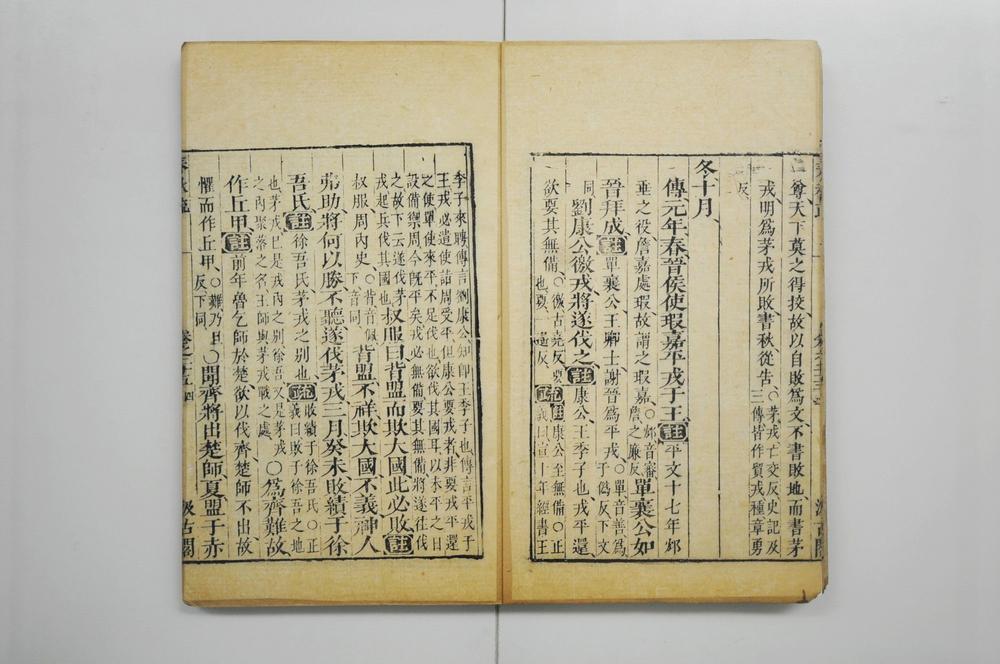 尊天下莫之得挍故以自敗爲文不書敗地而書茅
戎明爲茅戎所敗書秋從告〇茅戎亡交反史記及
三傳皆作貿戎種章勇
反
冬十月
傳元年春晉侯使瑕嘉平戎于王註平文十七年邥
垂之役詹嘉處瑕故謂之瑕嘉〇邥音審詹之廉反單襄公如
晉拜成註單襄公王卿士謝晉爲平戎〇單音善爲于僞反下文
同劉康公徼戎將遂伐之註康公王季子也戎平還
欲要其無備〇徼古堯反要也要一遥反疏註康公至無備〇正義曰宣十年經書王
季子來聘傳言劉康公知卽王季子也傳言平戎于
王戎必遣使詣周受平但康公要戎者非要戎平還
之使單使來平不足伐也欲伐其國耳以未平之日
設備禦周今旣平矣戎必無備要其無備將遂往伐
之故下云遂伐茅戎起兵伐其國也叔服曰背盟而欺大國此必敗註
叔服周內史〇背音佩下音同背盟不祥欺大國不義神人
弗助將何以勝不聽遂伐茅戎三月癸未敗績于徐
吾氏註徐吾氏茅戎之別也疏敗績于徐吾氏〇正義曰敗于徐吾之地
也茅戎已是戎內之別徐吾又是茅戎之內聚落之名王師與茅戎戰之處〇爲齊難故
作丘甲註前年魯乞師於楚欲以伐齊楚師不出故
懼而作丘甲〇難乃旦反下同〇聞齊將出楚師夏盟于赤
卷之二十五 四 汲古閣